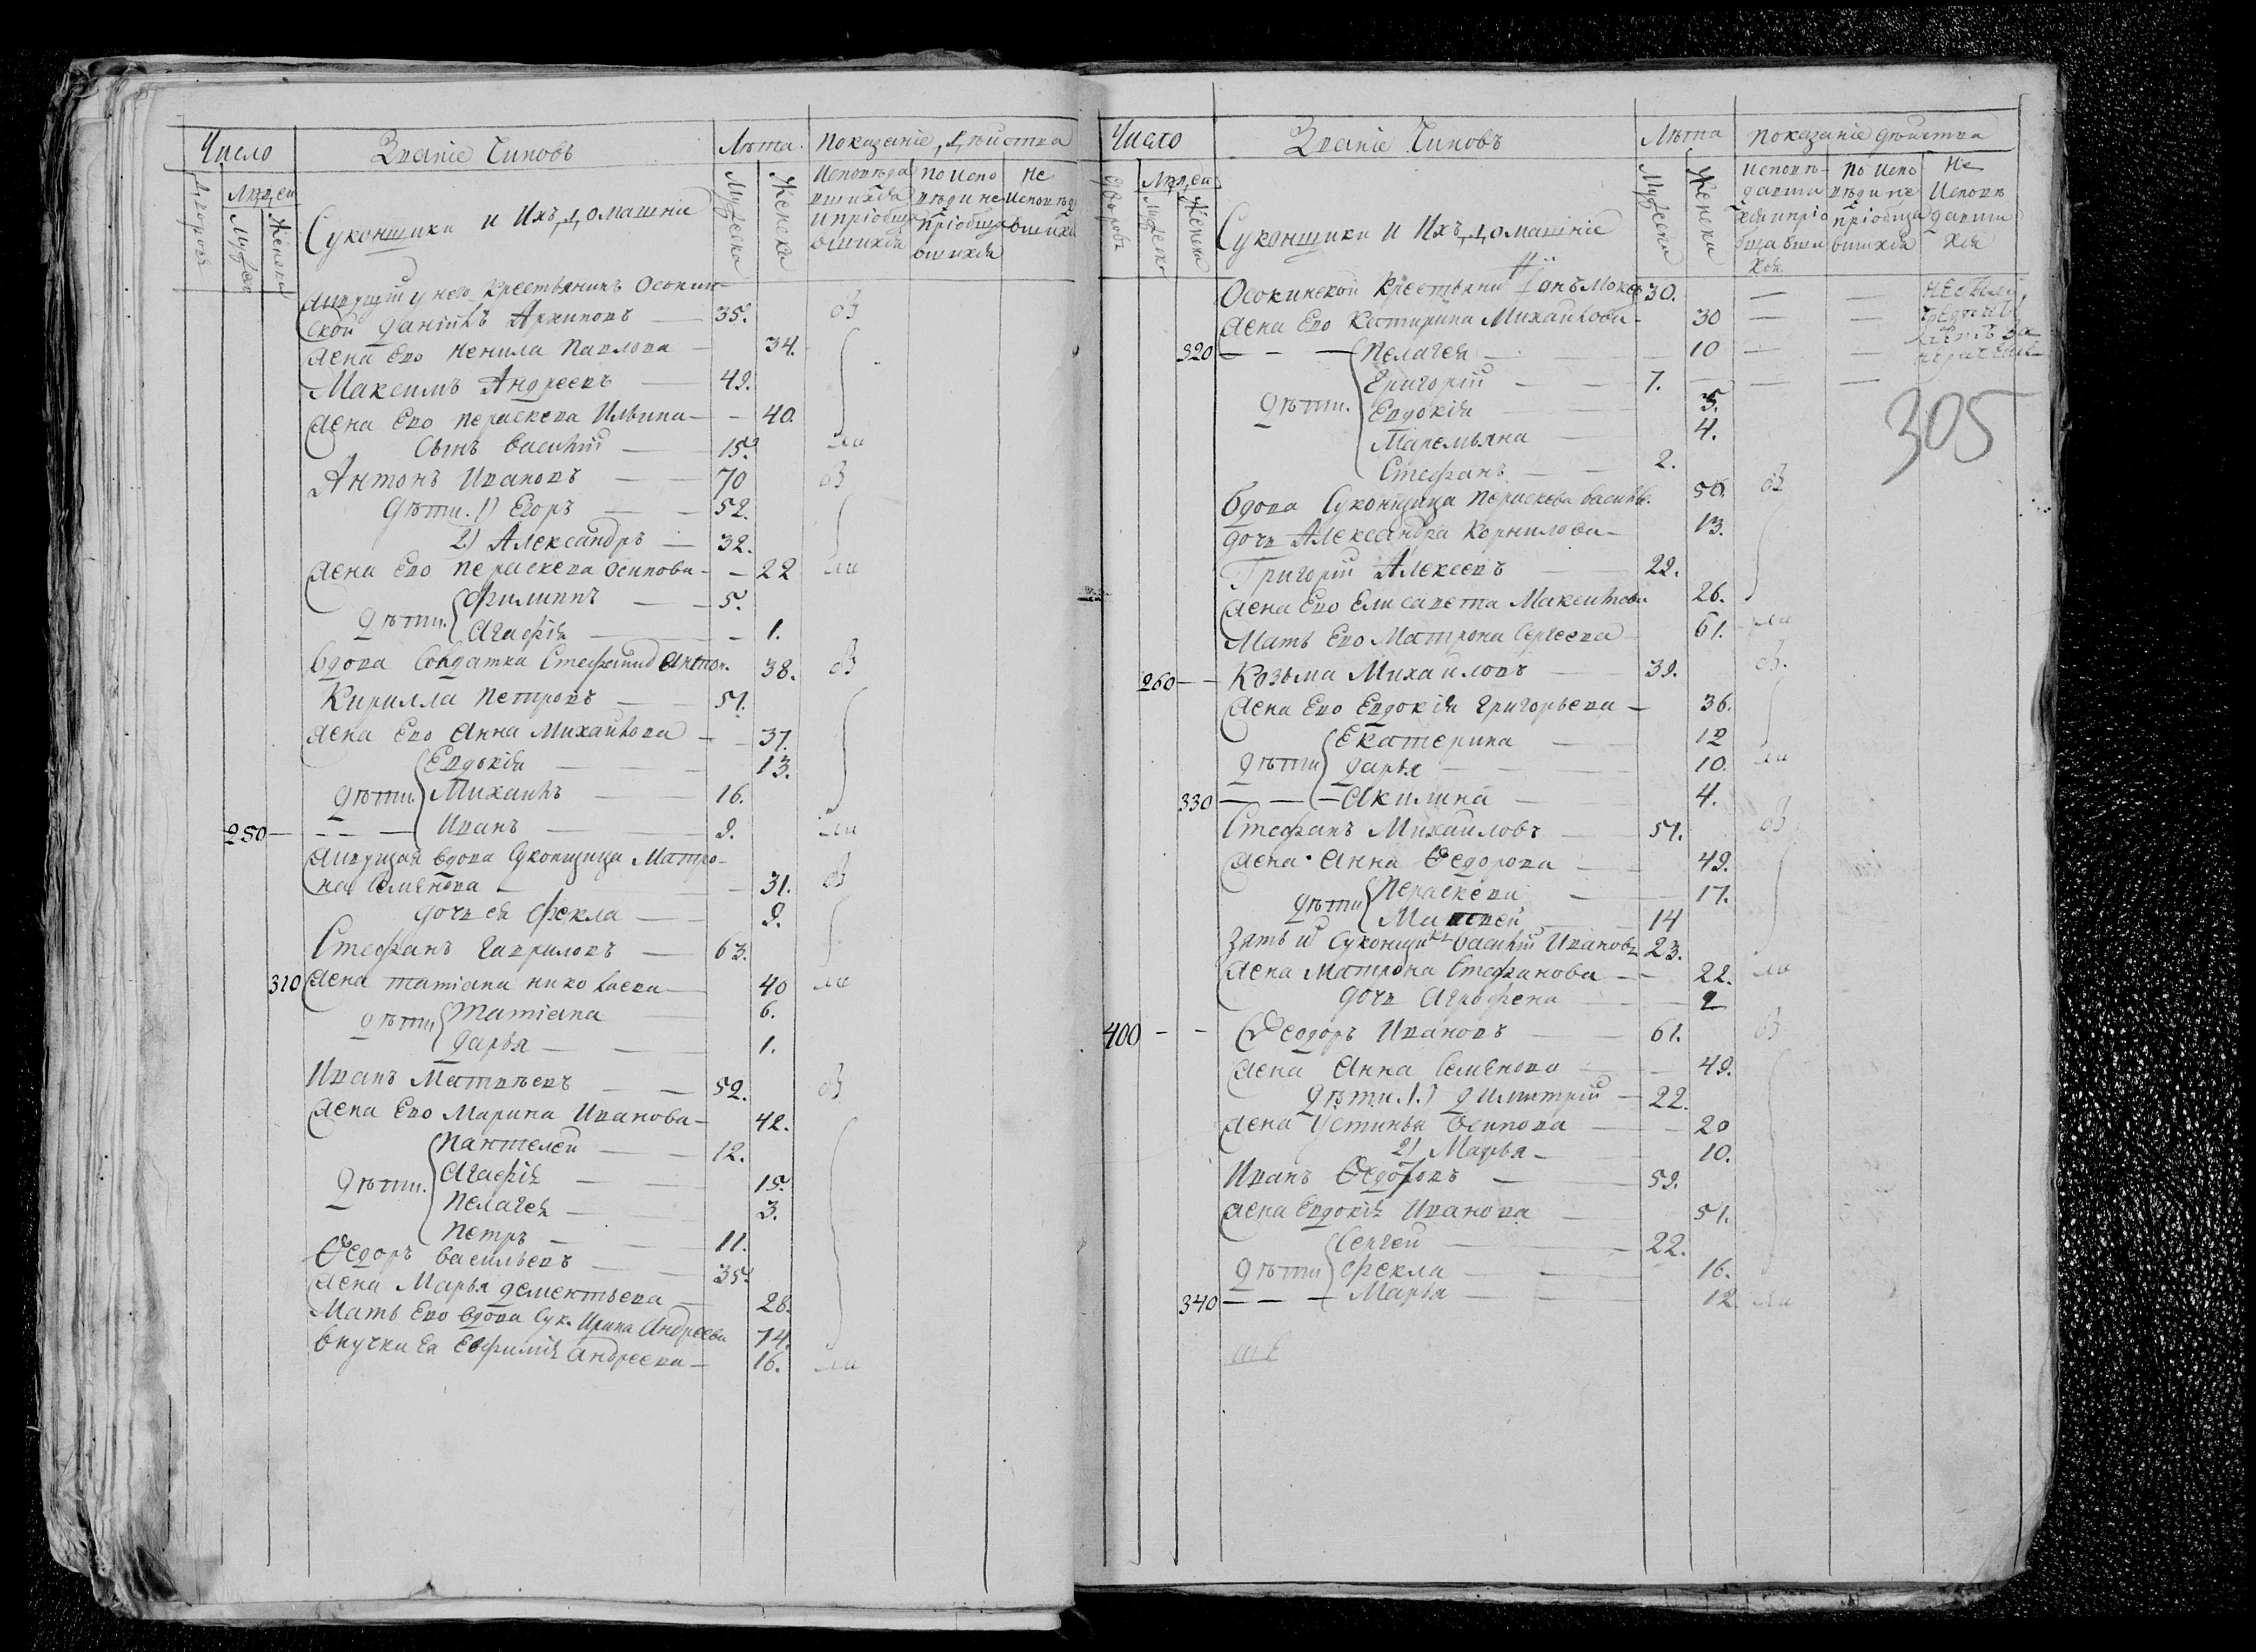 Число
Званіе Чиновъ
Лѣта.
Показаніе дѣйства
Дворовъ
Людей
Мужеска
Женска
Суконщики и Ихъ домашніе
Мужеска
Женска
Исповѣда
вшихся
и пріобща
вшихся
По испо
вѣди не
пріобща
вшихся
Не
исповѣда
вшихся
Живущіи у него Крестьянинъ Осокин
ской Даніилъ Архиповъ 35.
Жена Его Ненила Павлова 34.
Максимъ Андреевъ 49.
Жена Его Пераскева Ильина 40.
Сынъ Василій 15.
Антонъ Ивановъ 70
Дѣти. 1) Егоръ 52.
2) Александръ 32.
Жена Его Пераскева Осипова 22
Филиппъ 5.
Дѣти. Агафія 1.
Вдова Солдатка Стефанида Антон. 38.
Кирилла Петровъ 51.
Жена Его Анна Михайлова 37.
Евдокія 13.
Дѣти. Михаилъ 16.
250 Иванъ 9.
Живущая вдова Суконщица Матро
на Семенова 31.
дочь ея Фекла 9.
Стефанъ Гавриловъ 63.
310 Жена Татіана Николаева 40
Дѣти Татіана 6.
Дарья 1.
Иванъ Матвѣевъ 52.
Жена Его Марина Иванова 42.
Пантелей 12.
Дѣти. Агафія 15.
Пелагея 3.
Петръ 11.
Ѳедоръ Васильевъ 35.
Жена Марья Дементьева 28.
Мать Его вдова Сук. Ирина Андреева 74.
Внучка Ея Евфимія Андреева 16.
Число
Званіе Чиновъ
Лѣта
Показаніе дѣйства
Дворовъ
Людей
Мужеска
Женска
Суконщики и Ихъ домашніе
Мужеска
Женска
Исповѣ
давши
хся и прiо
бщавши
хся
По испо
вѣди не
пріобща
вшихся
Не
Исповѣ
давши
хся
Осокинской Крестьянинъ 30.
Жена Его Катирина Михайлова 30
320 Пелагея 10
Григорій 7.
Дѣти. Евдокія 5.
Маремьяна 4.
Стефанъ 2.
305
Вдова Суконщица Пераскева Василь. 50.
дочь Александра Корнилова 13.
Григорій Алексеевъ 22.
Жена Его Елисавета Максимова 26.
Мать Его Матрона Сергеева 61.
260 Козьма Михайловъ 39.
Жена Его Евдокія Григорьева 36.
Екатерина 12
Дѣти Дарья 10.
330 Акилина 4.
Стефанъ Михайловъ 51.
Жена Анна Ѳедорова 49.
Дѣти Пераскева 17.
Матвей 14
Зять и Суконщикъ Василій Ивановъ 23.
Жена Матрона Стефанова 22.
дочь Агрофена 2
400 Ѳеодоръ Ивановъ 61.
Жена Анна Семенова 49.
Дѣти. 1.) Димитрій 22.
Жена Устинья Осипова 20
2) Марья 10.
Иванъ Ѳедоровъ 59.
Жена Евдокія Иванова 51.
Сергей 22.
Дѣти Фекла 16.
340 Марья 12